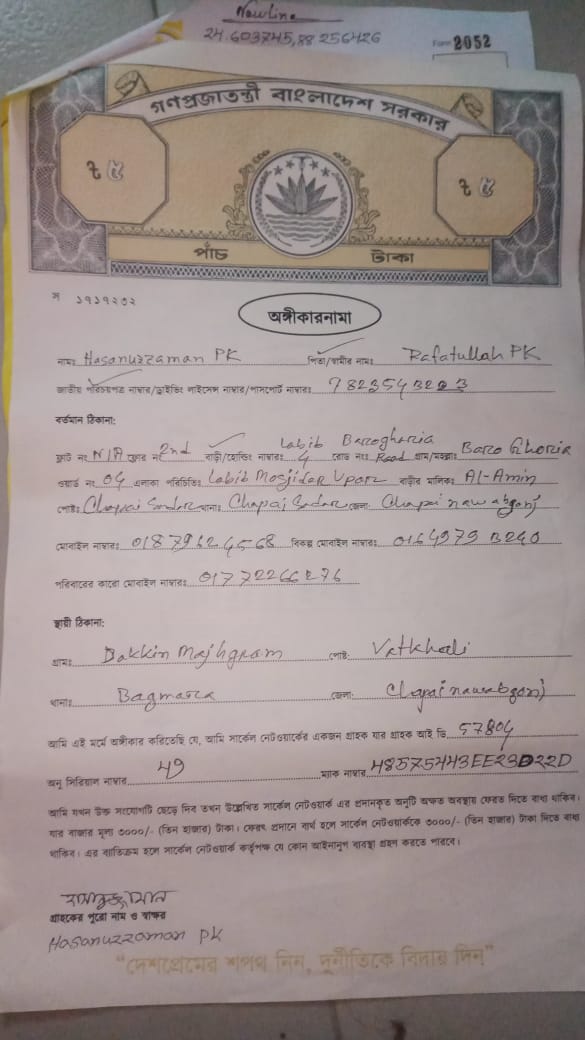 Newline
24.603745,88.256426
Form 2052
গণপ্রজাতন্ত্রী বাংলাদেশ সরকার
৳ ৫ ৳ ৫
পাঁচ টাকা
স ১৭১৭২৩২
অঙ্গীকারনামা
নামঃ Hasanuzzaman PK পিতা/স্বামীর নামঃ Rafatullah PK
জাতীয় পরিচয়পত্র নাম্বার/ড্রাইভিং লাইসেন্স নাম্বার/পাসপোর্ট নাম্বারঃ
বর্তমান ঠিকানা:
ফ্লাট নং N/A ফ্লোর নং 2nd বাড়ী/হোল্ডিং নাম্বারঃ Labib 4 রোড নংঃ Barogharia Road গ্রাম/মহল্লাঃ Baro Ghoria
ওয়ার্ড নং 04 এলাকা পরিচিতিঃ Labib Mosjider Uparz বাড়ীর মালিকঃ Al-Amin
পোষ্টঃ Chapai Sadar থানাঃ Chapai Sadar জেলাঃ Chapai nawabganj
মোবাইল নাম্বারঃ 01879624568 বিকল্প মোবাইল নাম্বারঃ
পরিবারের কারো মোবাইল নাম্বারঃ 01772266276
স্থায়ী ঠিকানা:
গ্রামঃ Dakkin Majhgram পোষ্টঃ Vatkhali
থানাঃ Bagmara জেলাঃ Chapai nawabganj
আমি এই মর্মে অঙ্গীকার করিতেছি যে, আমি সার্কেল নেটওয়ার্কের একজন গ্রাহক যার গ্রাহক আই ডি 57804
অনু সিরিয়াল নাম্বার 49 ম্যাক নাম্বার 48575443EE23D22D
আমি যখন উক্ত সংযোগটি ছেড়ে দিব তখন উল্লেখিত সার্কেল নেটওয়ার্ক এর প্রদানকৃত অনুটি অক্ষত অবস্থায় ফেরত দিতে বাধ্য থাকিব।
যার বাজার মূল্য ৩০০০/- (তিন হাজার) টাকা। ফেরৎ প্রদানে ব্যর্থ হলে সার্কেল নেটওয়ার্ককে ৩০০০/- (তিন হাজার) টাকা দিতে বাধ্য
থাকিব। এর ব্যতিক্রম হলে সার্কেল নেটওয়ার্ক কর্তৃপক্ষ যে কোন আইনানুগ ব্যবস্থা গ্রহণ করতে পারবে।
হাসানুজ্জামান
গ্রাহকের পুরো নাম ও স্বাক্ষর
Hasanuzzaman PK
"দেশপ্রেমের শপথ নিন, দুর্নীতিকে বিদায় দিন"